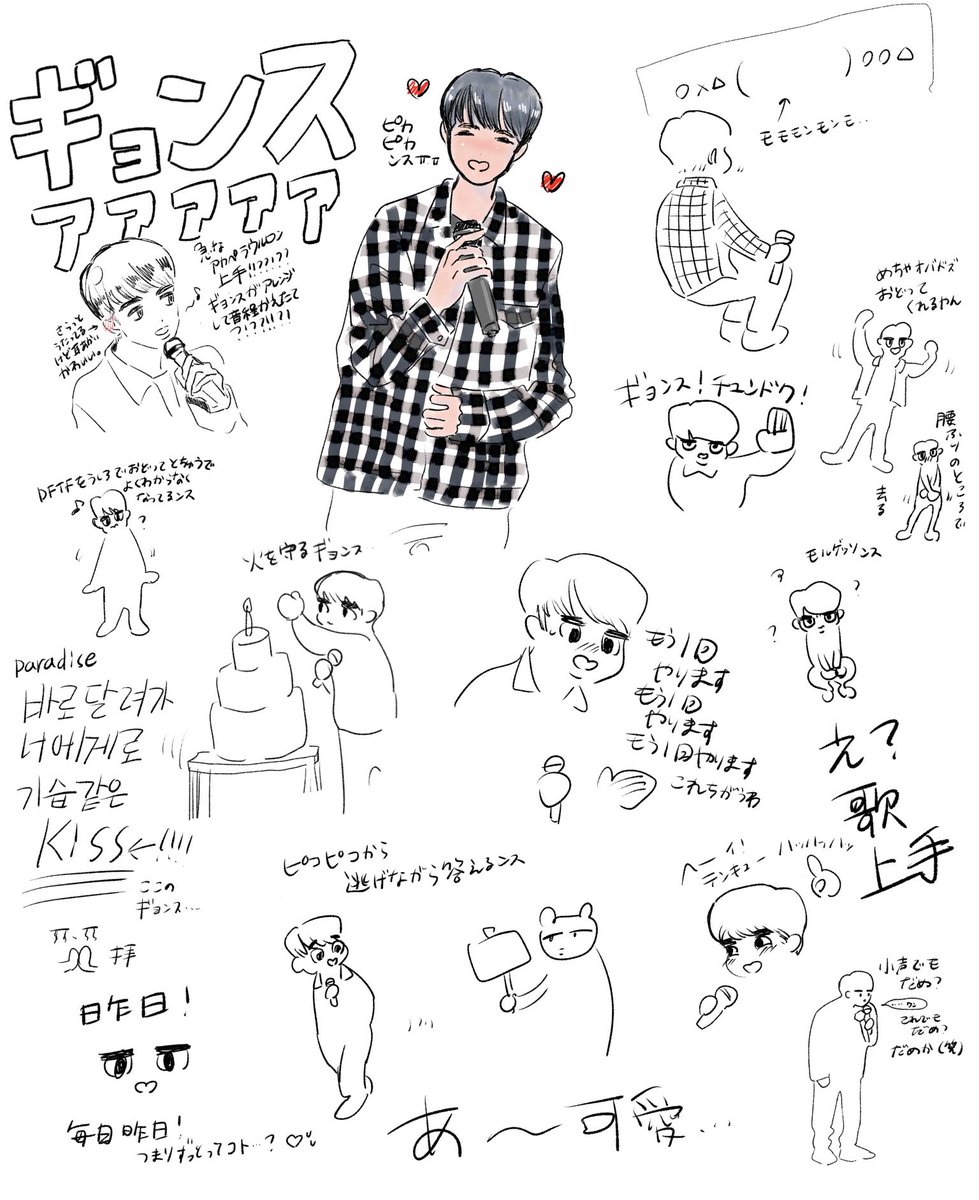 ギョンス
アアアアア
ピカ
ピカ
ンスㅠㅠ
○×△(　　　)○○△
モモモンモンモ..
急な
アカペラウルロン
上手!!??!??
ギョンスがアレンジ
して音程かえたて
?!??!!?!
さらっと
うたってる
けど耳が
かわいい。
めちゃオバドズ
おどって
くれるやん
ギョンス!チュンドク!
腰ふりのところで
去る
DFTFをうしろでおどってとちゅうで
よくわからなく
なってるンス
?
火を守るギョンス
モルゲッソンス
?
?
もう1回
やります
もう1回
やります
もう1回やります
これちがうわ
paradise
바로 달려가
너에게로
기습같은
KISS←!!!!
ここの
ギョンス...
拝
え?
歌
上手
ピコピコから
逃げながら答えるンス
ヘーイ!
テンキュー ハッハッハッ
昨日!
毎日昨日!
つまりずっとってコト...?♡
小声でも
だめ?
これでも
だめ?
だめか(笑)
あ〜可愛...